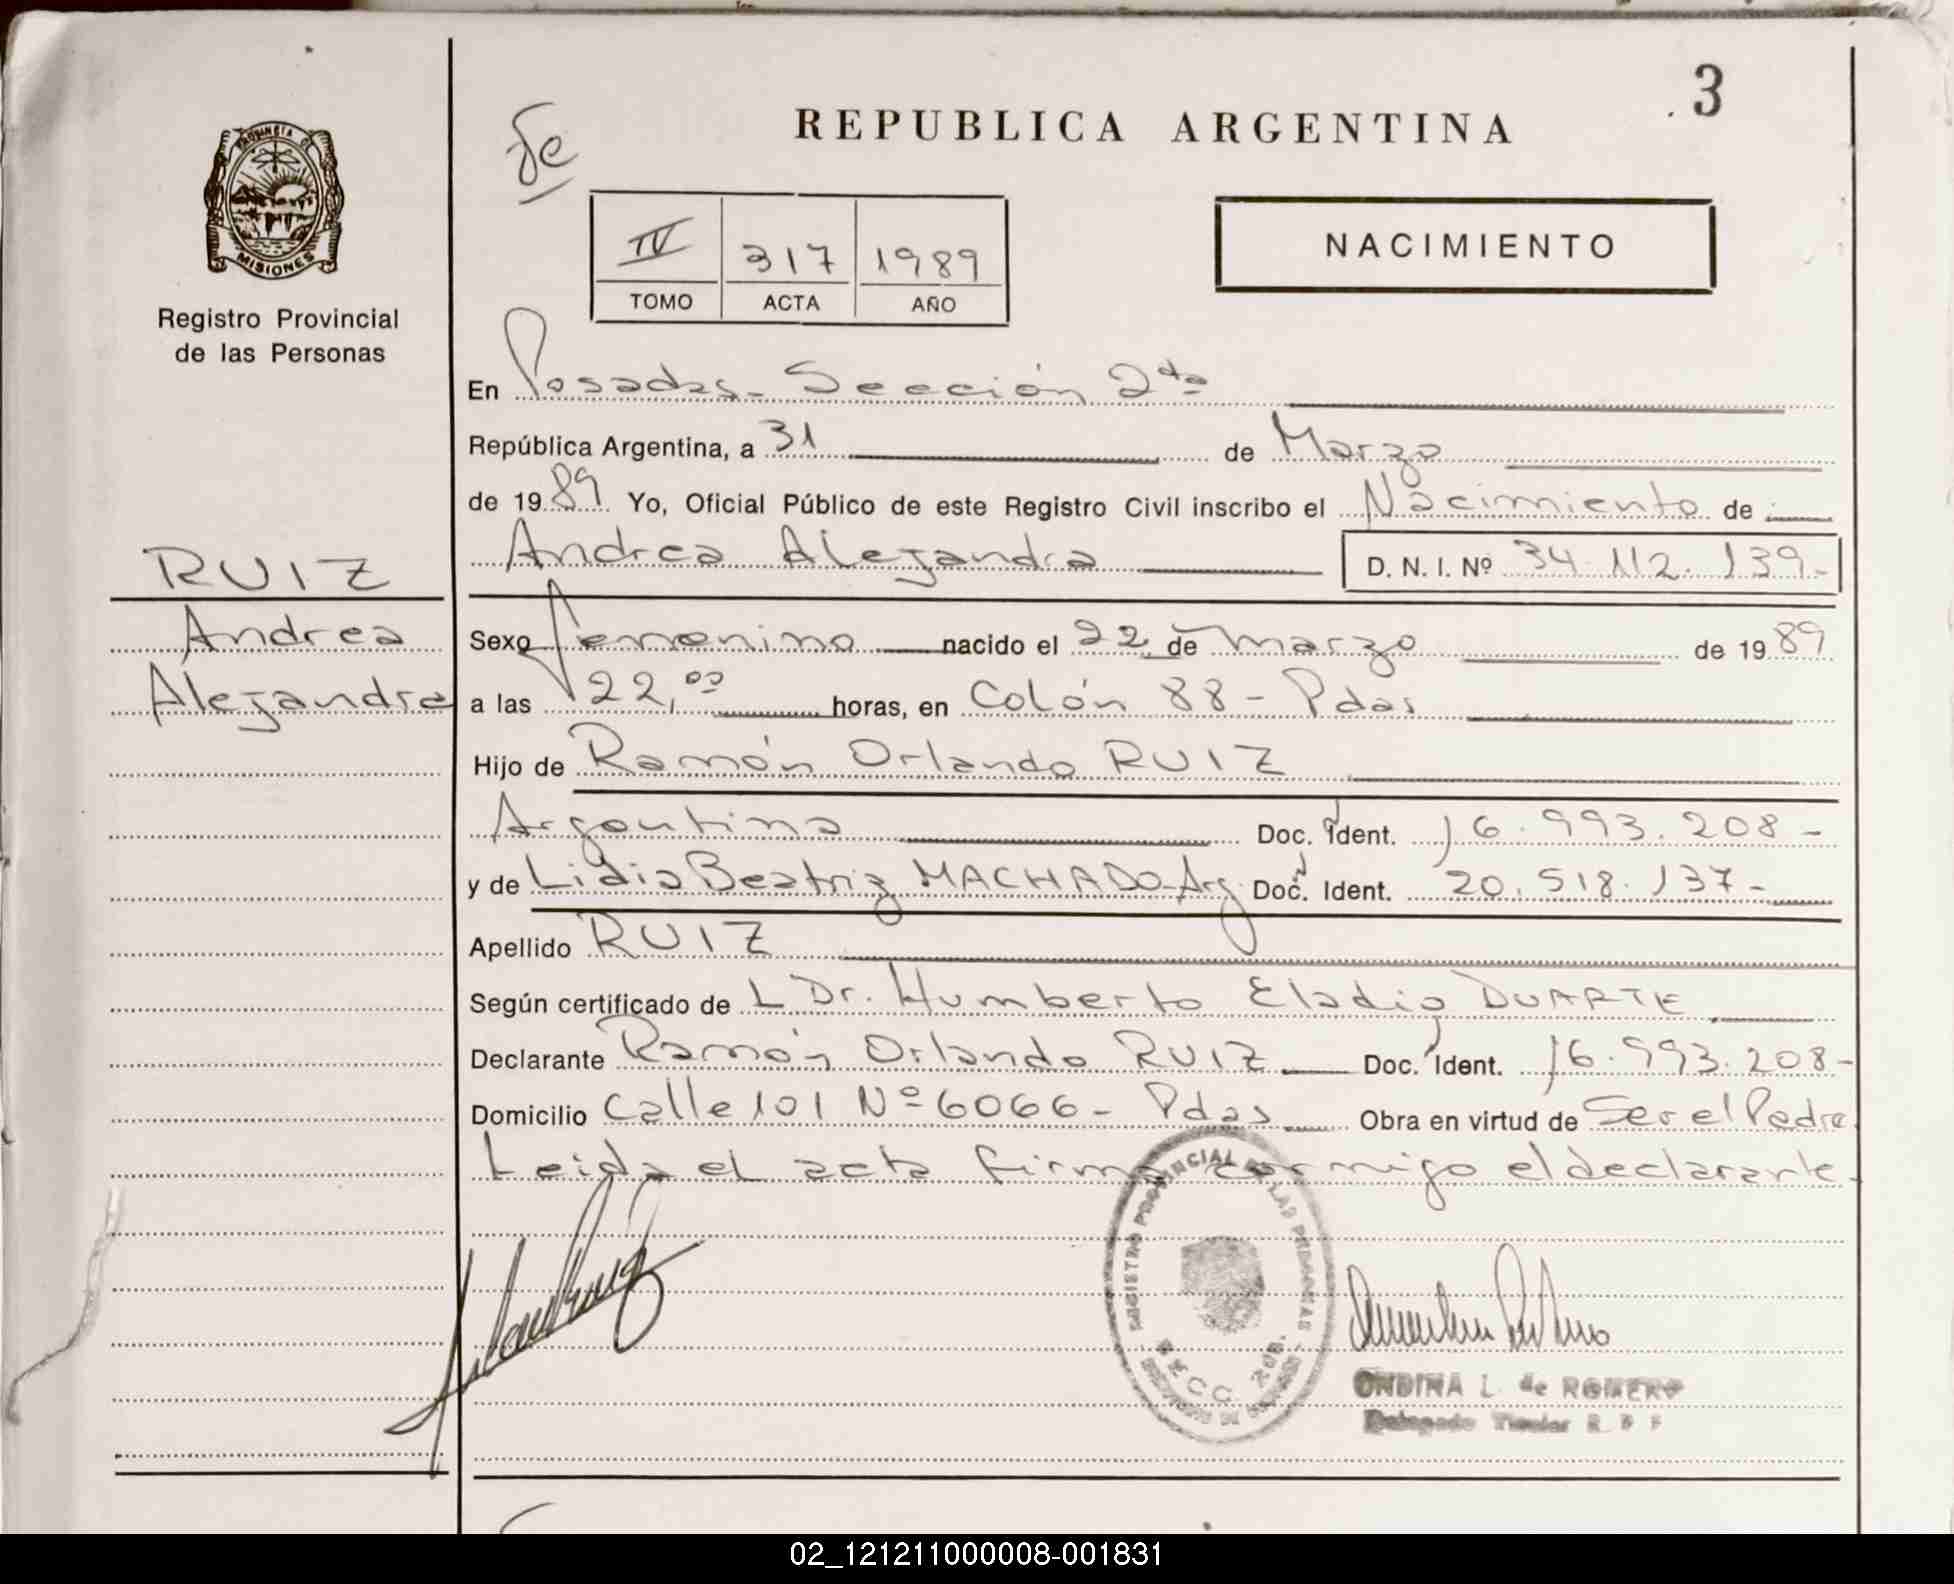 3
REPUBLICA ARGENTINA
PROVINCIA DE
MISIONES
Registro Provincial
de las Personas
IV 317 1989
TOMO ACTA AÑO
NACIMIENTO
En Posadas - Sección 2da
República Argentina, a 31 de Marzo
de 1989 Yo, Oficial Público de este Registro Civil inscribo el Nacimiento de
Andrea Alejandra D. N. I. Nº 34.112.139-
RUIZ
Andrea
Alejandra
Sexo femenino nacido el 22 de marzo de 1989
a las 22,00 horas, en Colón 88 - Pdas
Hijo de Ramón Orlando RUIZ
Argentino Doc. Ident. 16.993.208-
y de Lidia Beatriz MACHADO - Arg. Doc. Ident. 20.518.137-
Apellido RUIZ
Según certificado de L Dr. Humberto Eladio DUARTE
Declarante Ramón Orlando RUIZ Doc. Ident. 16.993.208-
Domicilio Calle 101 Nº 6066 - Pdas Obra en virtud de Ser el Padre
Leida el acta firma conmigo el declarante.
REGISTRO PROVINCIAL DE LAS PERSONAS
ONDINA L. de ROMERO
Delegado Titular R. P. P
02_121211000008-001831